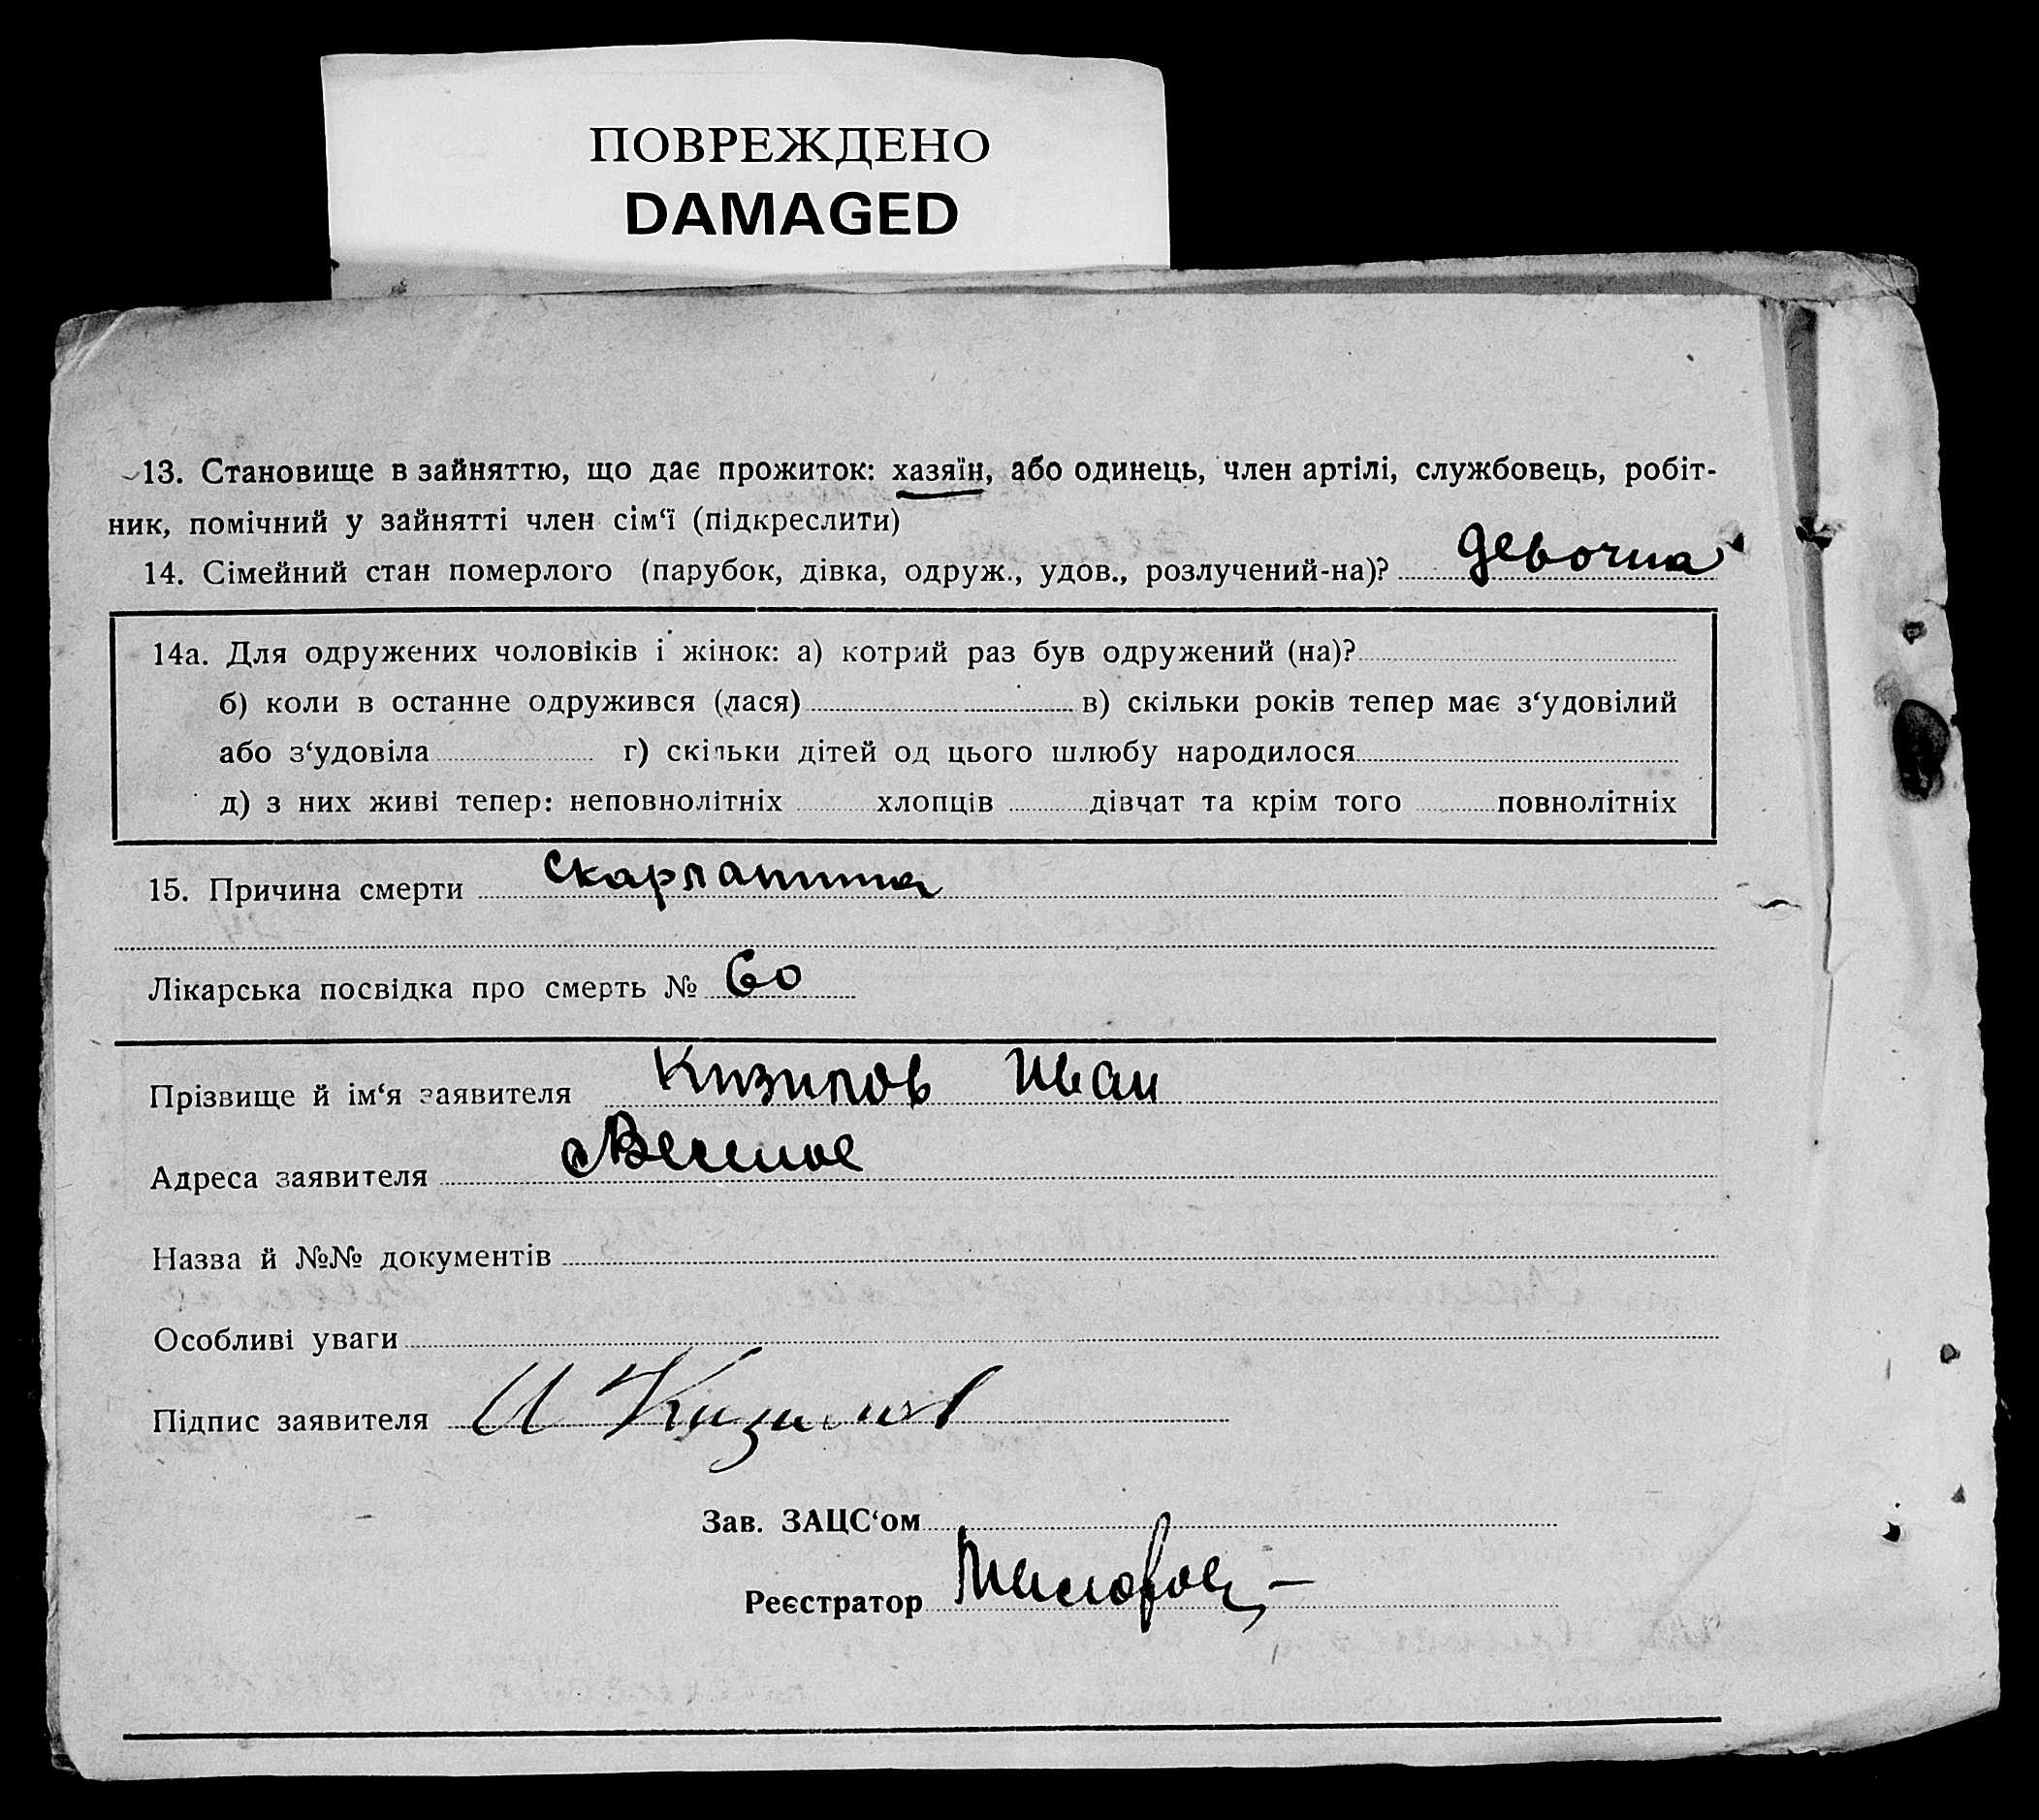 ПОВРЕЖДЕНО
DAMAGED
13. Становище в зайняттю, що дає прожиток: хазяїн, або одинець, член артілі, службовець, робіт-
ник, помічний у зайнятті член сім‘ї (підкреслити)
14. Сімейний стан померлого (парубок, дівка, одруж., удов., розлучений-на)? девочка
14а. Для одружених чоловіків і жінок: а) котрий раз був одружений (на)?
б) коли в останне одружився (лася) в) скільки років тепер має з‘удовілий
або з‘удовіла г) скільки дітей од цього шлюбу народилося
д) з них живі тепер: неповнолітніх хлопців дівчат та крім того повнолітніх
15. Причина смерти скарлатина
Лікарська посвідка про смерть № 60
Прізвище й ім‘я заявителя Кизилов Иван
Адреса заявителя с Веселое
Назва й №№ документів
Особливі уваги
Підпис заявителя И Кизилов
Зав. ЗАЦС‘ом
Реєстратор